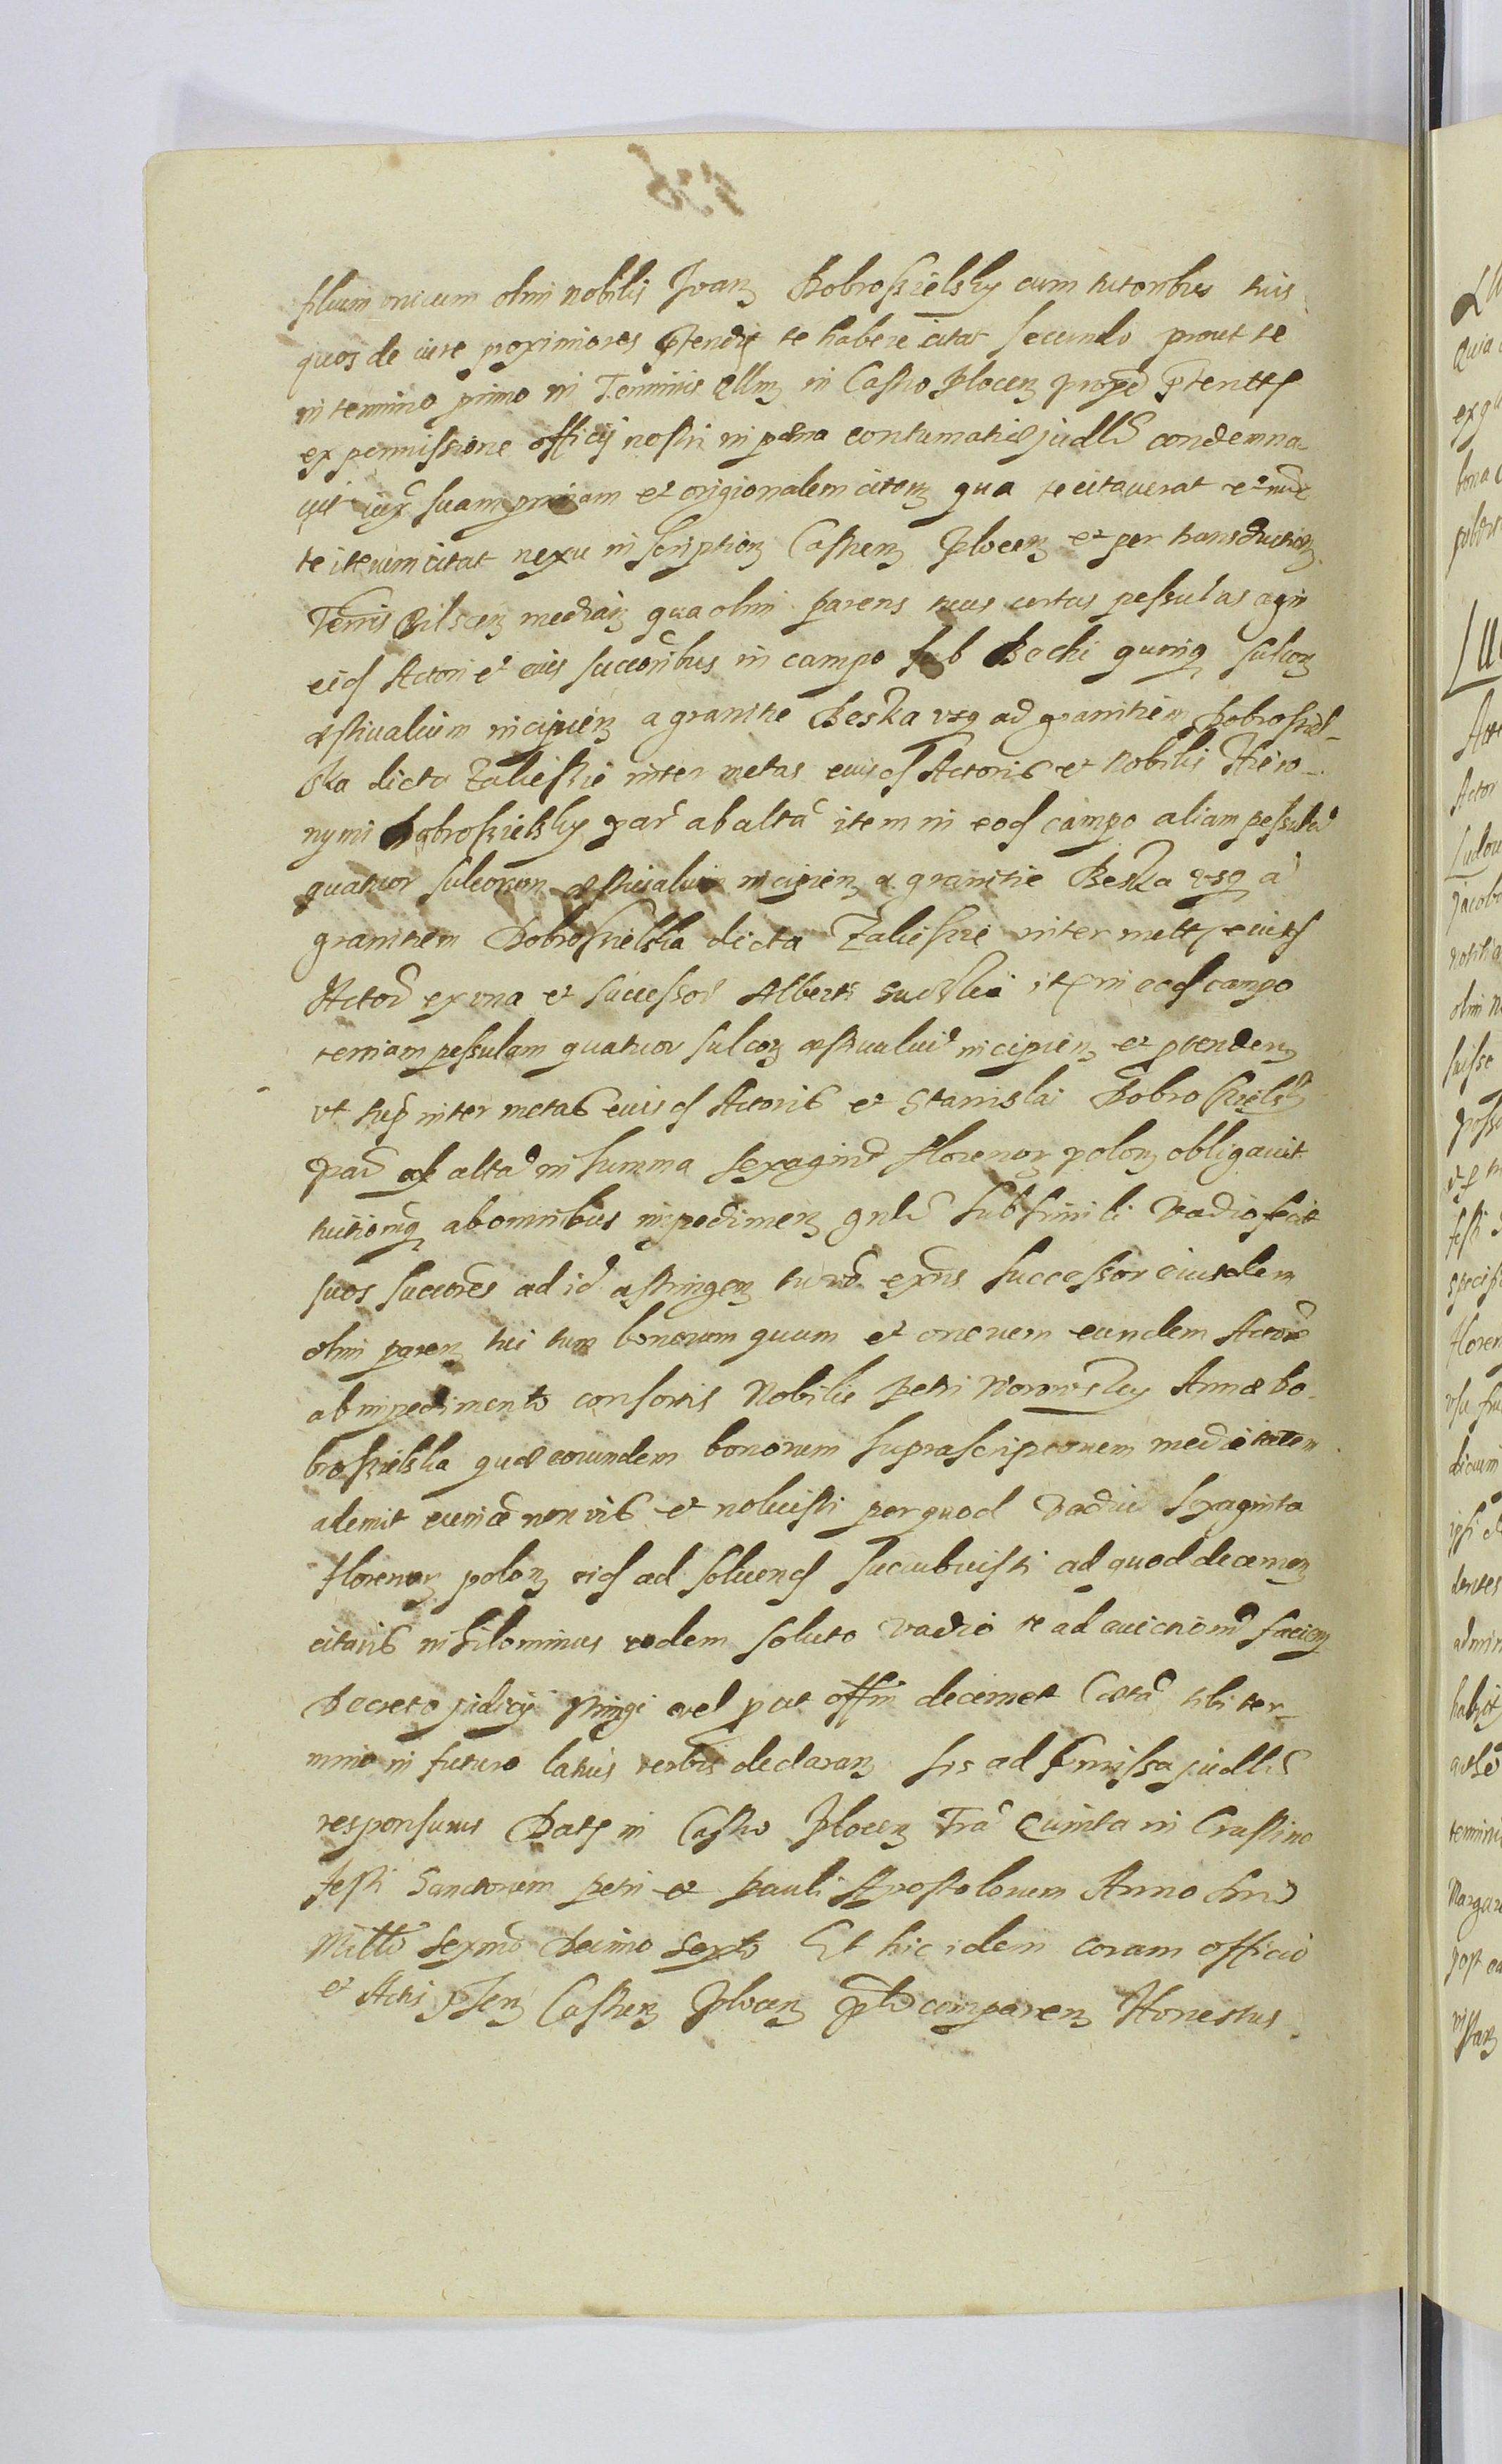 filium unicum olim nobilis Joan Dobrosielsky cum tutoribus tuis
quos de iure proximiores te habere citat secundo prout te
in termino primo in Terminis in Castro Plocen
ex permissione officij nostri in pæna contumatiæ judlr condemna-
vit iux suam primam et origionalem citaon qua te citaverat et nunc
te iterum citat nexu inscription Castren Plocen et per transduction
Terris Bilscen median qua olim parens tuus certas pessulas agri
eid Actori et eius succoribus in campo sub Bochi quinq sulcon
æstivalium incipien a granitie Beska usq ad granitiem Dobrosiel-
ska dicta Zaliesie inter metas eiusd Actoris et Nobilis Hiero-
nymi Dobrosielsky par ab alta item in eod campo aliam pessula
quatuor sulcorum æstivalium incipien a granitie Beska usq a
granitiem Dobrosielska dicta Zaliesie inter mett eiusd
Actor ex una et successor Alberti it in eod campo
terciam pessulam quatuor sulcon æstivaliu incipien et ptenden
ut sup inter metas eiusd Actoris et Stanislai Dobrosielsk
par ab alta in summa sexagint florenor polon obligavit
tuitionq ab omnibus impedimen gnlr sub simili vadio fecit
suos succores ad id astringen tu vo exns successor eiusdem
olim paren tui tum bonorum quum et onerum eundem Actore
ab impedimento consortis Nobilis Petri Annæ Do-
brosielska quæ eorundem bonorum suprascriptorum medietatem
ademit evince non vis et noluisti per quod vadiu sexaginta
florenor polon eid ad solvend succubuisti ad quod decernen
citaris nihilominus eodem soluto vadio te ad evictione facien
Decreto judicij stringi vel put offm decernet Cæta tibi ter-
mino in futuro latius verbis declaran sis ad pmissa judlr
responsurus Datt in Castro Plocen Fra Quinta in Crastino
festi Sanctorum Petri et Pauli Apostolorum Anno Dni
Millo sexmo Decimo sexto Et hic idem coram officio
et Actis psen Castren Plocen plr comparen Honestus